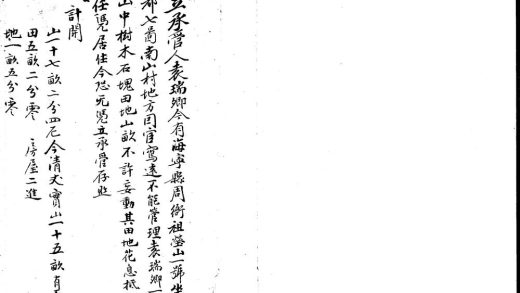 立承管人袁瑞卿今有海寧縣周衙祖塋山一號坐
都七啚南山村地方因宦寓遠不能管理袁瑞卿一
山中樹木石塊田地山畝不許妄動其田地花息抵
任凴居住今恐无凴立承管存照
計開
山一十七畝二分四厘今清丈實山一十五畝有
田五畝二分零 房屋二進
地一畝五分零